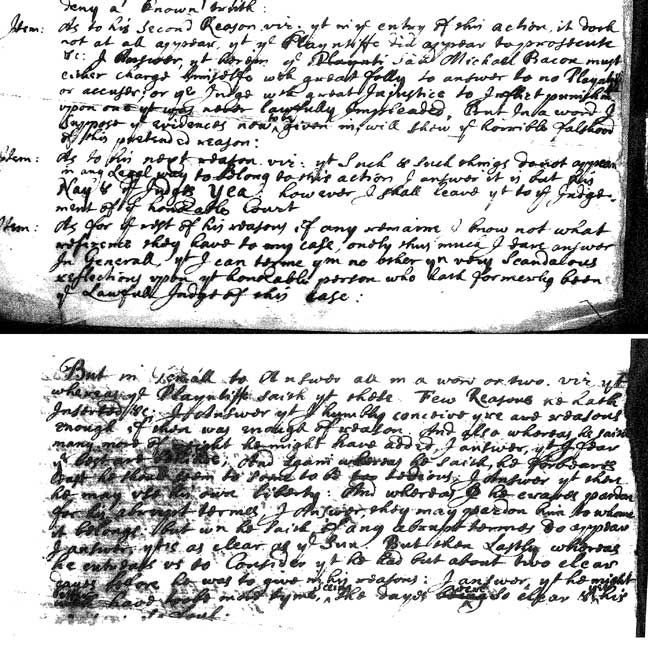 deny a known truth:
Item: As to his Second Reason. viz: yt in ye entry of this action, it doth
not at all appear, yt ye Playntiffe did appear to prosecute
&c: I Answer, yt herein ye Playnti said Michael Bacon must
either charge himselfe wth great folly to answer to no Playntif
or accuser, or ye Judge wth great Injustice to Inflict punishm
upon one yt was never lawfully Impleaded, But In a word I
Suppose ye evidences now given in, will shew ye horrible falshood
of this pretended reason:
Item: As to his next reason. viz: yt Such & Such things do not appear
in any Legal way to belong to this action I answer it is but his
Nay's & Judges Yea: however I shall leave yt to ye Judge-
ment of ye honorable Court
Item: As for ye rest of his reasons if any remaine I know not what
reference they have to my case, onely thus much I dare answer
In Generall, yt I can terme ym no other yn very Scandalous
reflections upon yt honorable person who hath formerly been
ye Lawfull Judge of this Case:
But in small to Answer all in a word or two. viz yt
whereas ye Playntiffe saith yt these Few Reasons he hath
Inserted &c: I Answer yt I humbly conceive yre are reasons
enough if there was enough of reason. And also whereas he saith
many more he might have added, I answer, yt I fear
ye best are And again whereas he saith, he forbears
least he should seem to some to be too tedious: I Answer yt then
he may use his own liberty: And whereas he craves pardon
for his abrupt termes, I Answer they may pardon him to whome
it belongs. but wn he saith if any abrupt termes do appear
I answer, yts as clear as ye Sun. But then Lastly whereas
he entreats us to Consider yt he had but about two clear
dayes before he was to give in his reasons: I answer, yt he might
have took more tyme, seing the dayes were so clear & his
soul.